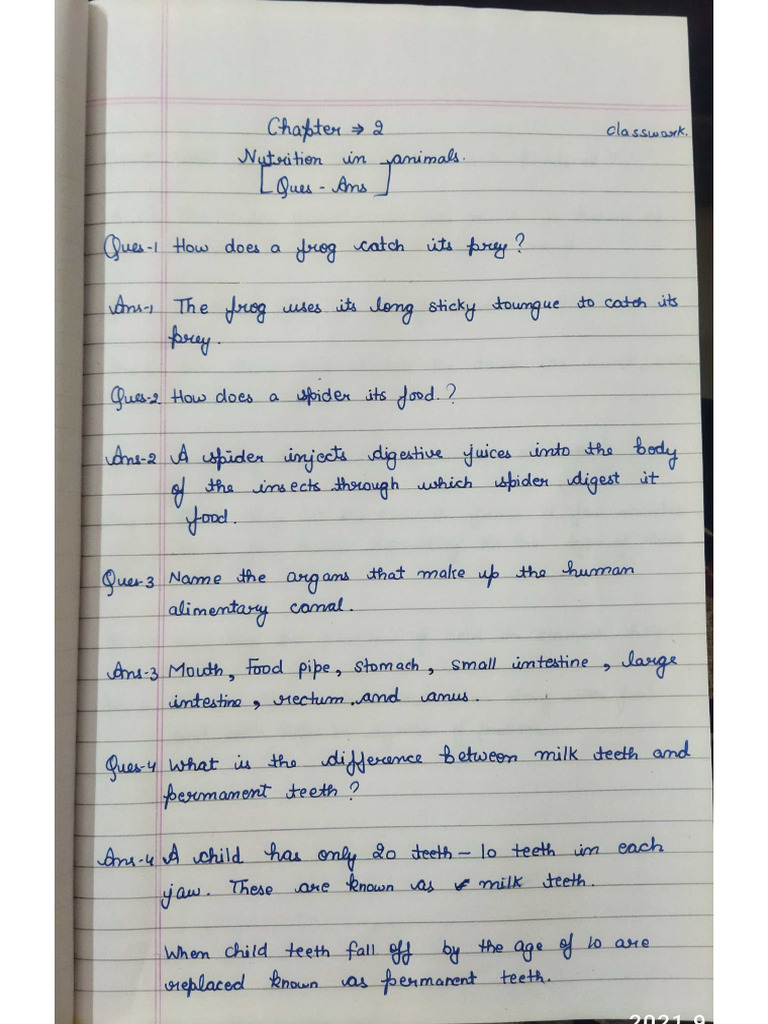 Chapter → 2
classwork.
Nutrition in animals.
[Ques - Ans]
Ques-1 How does a frog catch its prey?
Ans-1 The frog uses its long sticky toungue to catch its
prey.
Ques-2 How does a spider its food.?
Ans-2 A spider injects digestive juices into the body
of the insects through which spider digest it
food.
Ques-3 Name the organs that make up the human
alimentary canal.
Ans-3 Mouth, Food pipe, stomach, small intestine, large
intestine, rectum and anus.
Ques-4 What is the difference between milk teeth and
permanent teeth?
Ans-4 A child has only 20 teeth - 10 teeth in each
jaw. These are known as milk teeth.
When child teeth fall off by the age of 10 are
replaced known as permanent teeth.